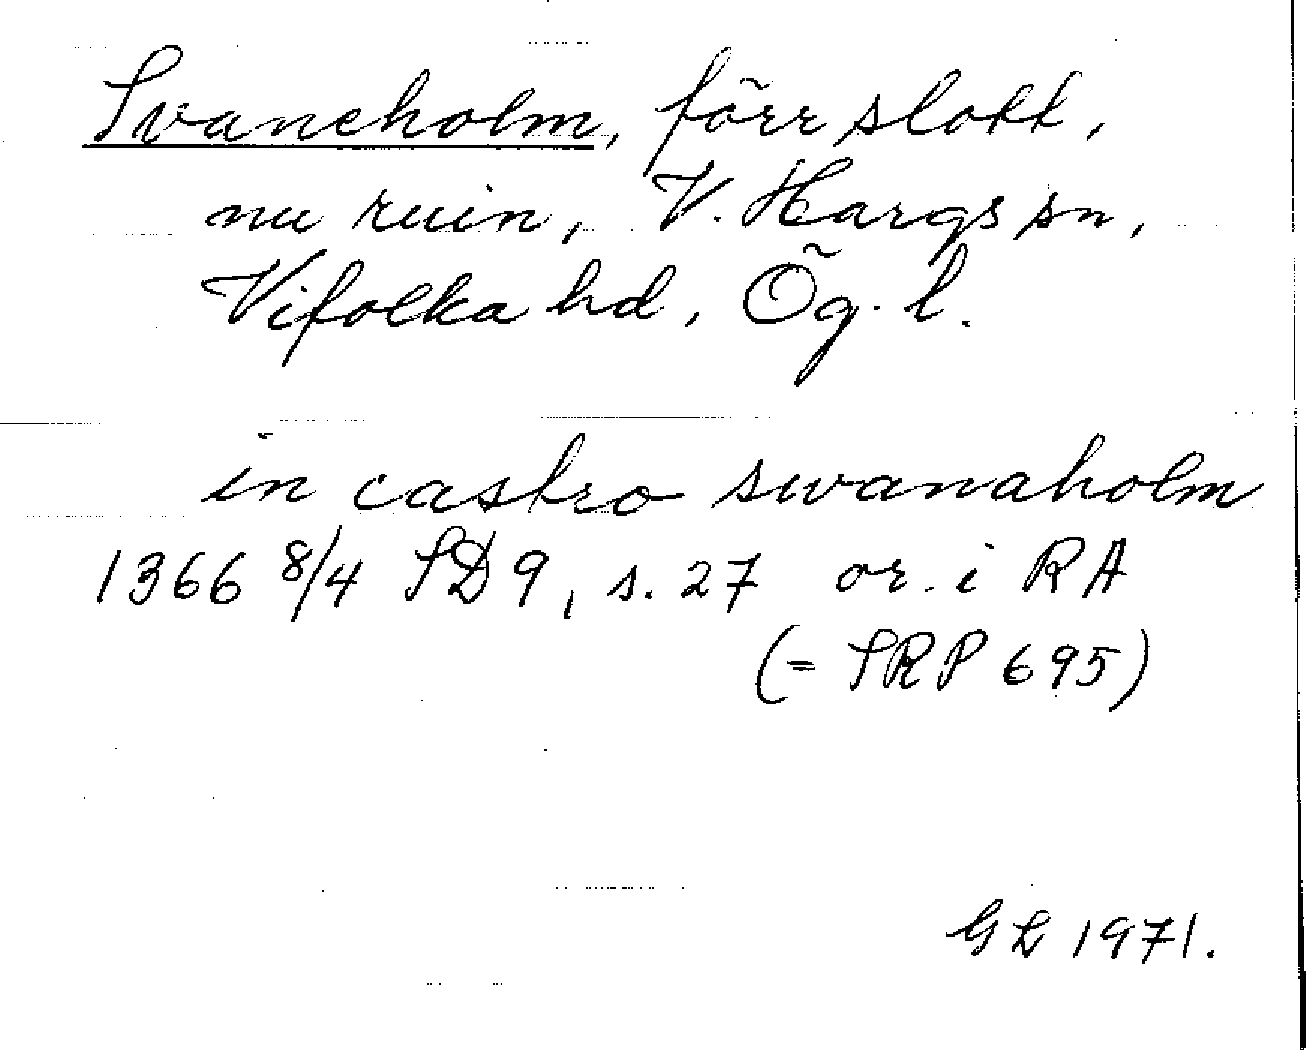 Svaneholm, förr slott,
nu ruin, V. Hargs sn,
Vifolka hd, Ög. l.
in castro swanaholm
1366 8/4 SD 9, s. 27 or. i RA
(= SRP 695)
GL 1971.